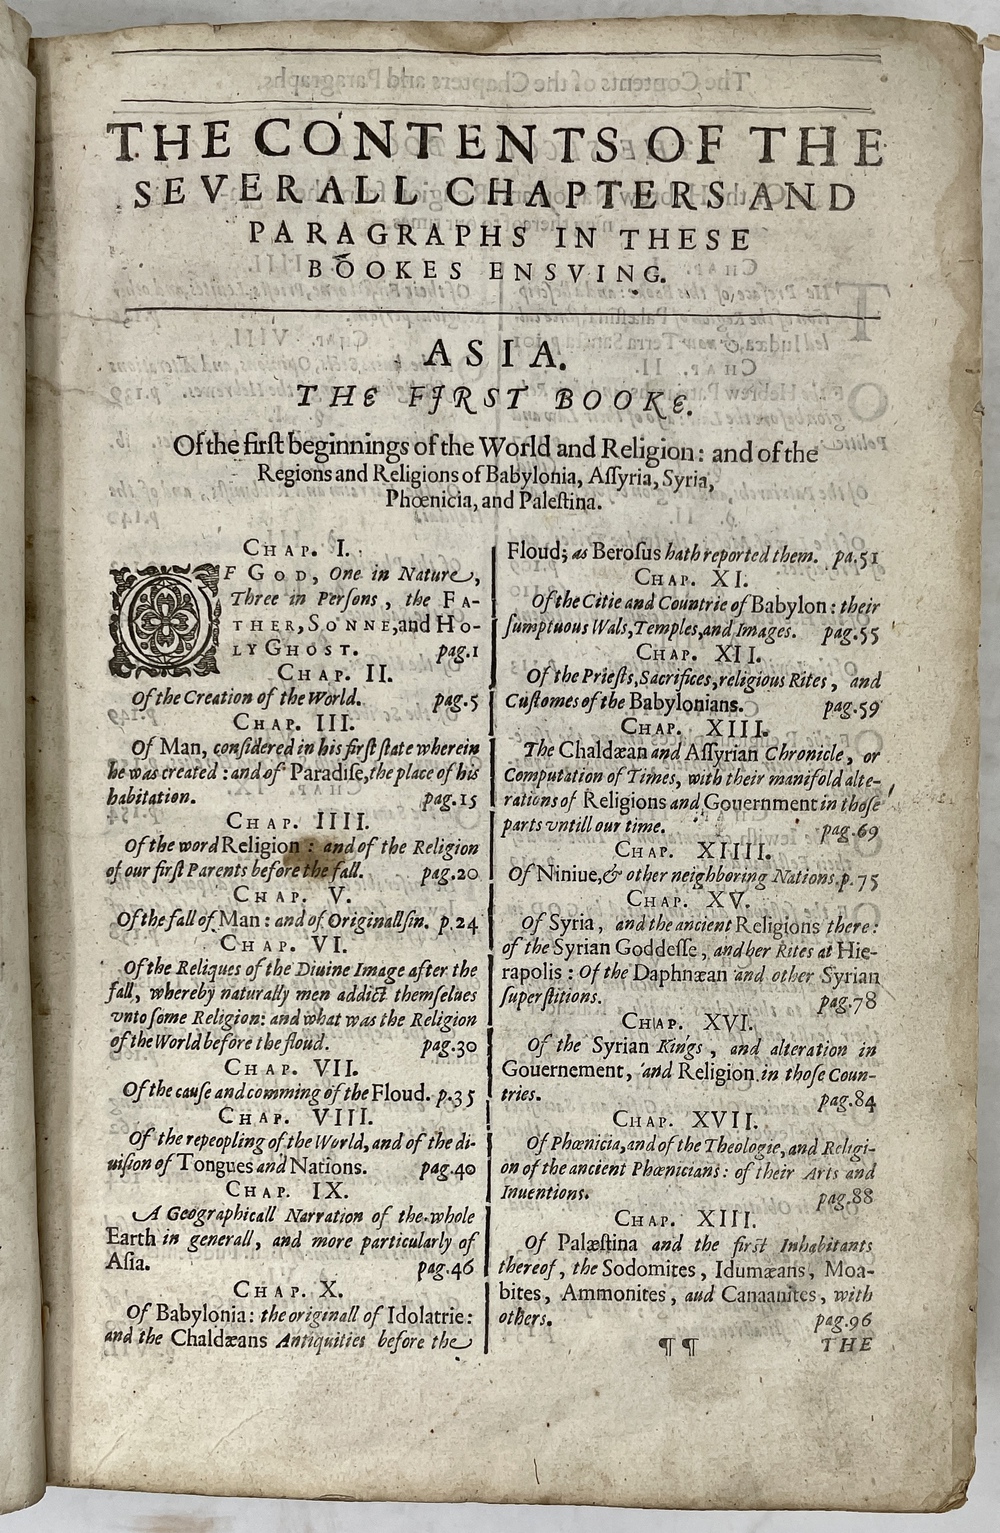 THE CONTENTS OF THE
SEVERALL CHAPTERS AND
PARAGRAPHS IN THESE
BOOKES ENSVING.
ASIA.
THE FIRST BOOKE.
Of the firſt beginnings of the World and Religion: and of the
Regions and Religions of Babylonia, Aſſyria, Syria,
Phœnicia, and Paleſtina.
CHAP. I.
OF GOD, One in Nature,
Three in Perſons, the FA-
THER, SONNE, and HO-
LY GHOST. pag.1
CHAP. II.
Of the Creation of the World. pag.5
CHAP. III.
Of Man, conſidered in his firſt ſtate wherein
he was created: and of Paradiſe, the place of his
habitation. pag.15
CHAP. IIII.
Of the word Religion: and of the Religion
of our firſt Parents before the fall. pag.20
CHAP. V.
Of the fall of Man: and of Originall ſin. p.24
CHAP. VI.
Of the Reliques of the Diuine Image after the
fall, whereby naturally men addict themſelues
vnto ſome Religion: and what was the Religion
of the World before the floud. pag.30
CHAP. VII.
Of the cauſe and comming of the Floud. p.35
CHAP. VIII.
Of the repeopling of the World, and of the di-
uiſion of Tongues and Nations. pag.40
CHAP. IX.
A Geographicall Narration of the whole
Earth in generall, and more particularly of
Aſia. pag.46
CHAP. X.
Of Babylonia: the originall of Idolatrie:
and the Chaldæans Antiquities before the
Floud; as Beroſus hath reported them. pa.51
CHAP. XI.
Of the Citie and Countrie of Babylon: their
ſumptuous Wals, Temples, and Images. pag.55
CHAP. XII.
Of the Prieſts, Sacrifices, religious Rites, and
Cuſtomes of the Babylonians. pag.59
CHAP. XIII.
The Chaldæan and Aſſyrian Chronicle, or
Computation of Times, with their manifold alte-
rations of Religions and Gouernment in thoſe
parts vntill our time. pag.69
CHAP. XIIII.
Of Niniue, & other neighboring Nations. p.75
CHAP. XV.
Of Syria, and the ancient Religions there:
of the Syrian Goddeſſe, and her Rites at Hie-
rapolis: Of the Daphnæan and other Syrian
ſuperſtitions. pag.78
CHAP. XVI.
Of the Syrian Kings, and alteration in
Gouernement, and Religion in thoſe Coun-
tries. pag.84
CHAP. XVII.
Of Phœnicia, and of the Theologie, and Religi-
on of the ancient Phœnicians: of their Arts and
Inuentions. pag.88
CHAP. XIII.
Of Palæſtina and the firſt Inhabitants
thereof, the Sodomites, Idumæans, Moa-
bites, Ammonites, aud Canaanites, with
others. pag.96
¶ ¶ THE